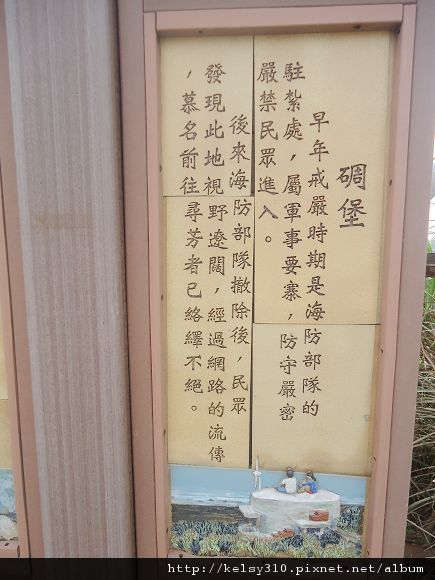 碉堡
早年戒嚴時期是海防部隊的
駐紮處，屬軍事要寨，防守嚴密
嚴禁民眾進入。
後來海防部隊撤除後，民眾
發現此地視野遼闊，經過網路的流傳
，慕名前往尋芳者已絡繹不絕。
http://kelsy310.pixnet.net/album